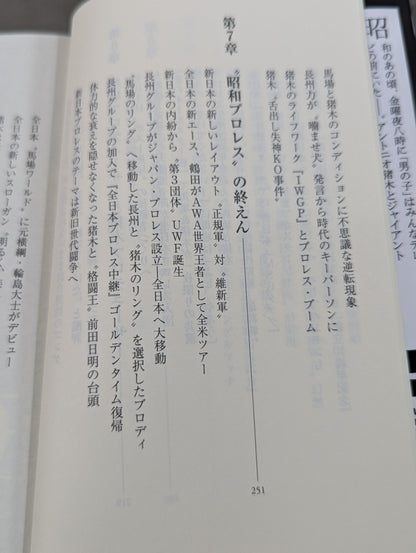 昭
和のあの頃、金曜夜八時に「男の子」はみんなテレ
ビの前にいた――。アントニオ猪木とジャイアント
馬場と猪木のコンディションに不思議な逆転現象
長州力が〝噛ませ犬〟発言から時代のキーパーソンに
猪木のライフワーク『IWGP』とプロレス・ブーム
猪木〝舌出し失神KO事件〟
第7章 〝昭和プロレス〟の終えん 251
新日本の新しいレイアウト〝正規軍〟対〝維新軍〟
全日本の新エース、鶴田がAWA世界王者として全米ツアー
新日本の内紛から〝第3団体〟UWF誕生
長州グループがジャパン・プロレス設立―全日本へ大移動
〝馬場のリング〟へ移動した長州と〝猪木のリング〟を選択したブロディ
長州グループの加入で『全日本プロレス中継』ゴールデンタイム復帰
体力的な衰えを隠せなくなった猪木と〝格闘王〟前田日明の台頭
新日本プロレスのテーマは新旧世代闘争へ
全日本〝馬場ワールド〟に元横綱・輪島大士がデビュー
全日本の新しいスローガン〝明るく